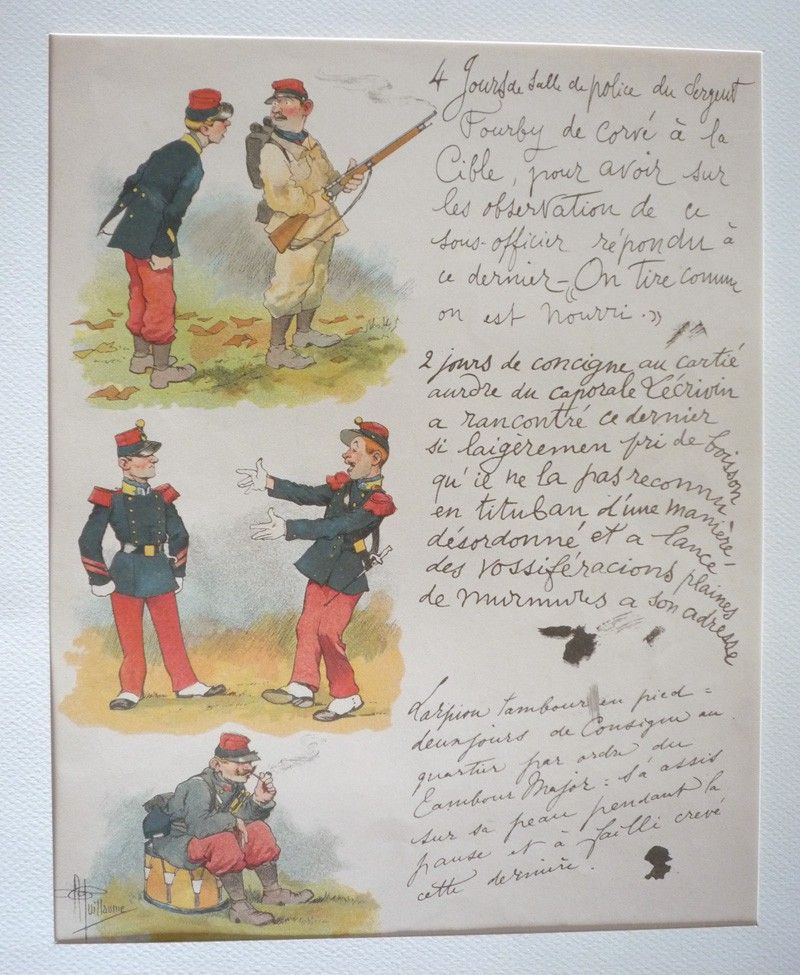 4 Jours de salle de police du Sergent
Fourby de corvé à la
Cible, pour avoir sur
les observation de ce
sous-officier répondu à
ce dernier - "On tire comme
on est nourri."
2 jours de concigne au cartié
aurdre du caporale Lécrivin
a rancontré ce dernier
si laigèremen pri de boisson
qu'il ne la pas reconnu
en tituban d'une manière-
désordonné et a lancé
des vossiféracions plaines
de murmures a son adresse
Larpion tambour en pied =
deux jours de Consigne au
quartier par ordre du
Tambour Major = s'a assis
sur sa peau pendant la
pause et à failli crevé
cette dernière.
A Guillaume